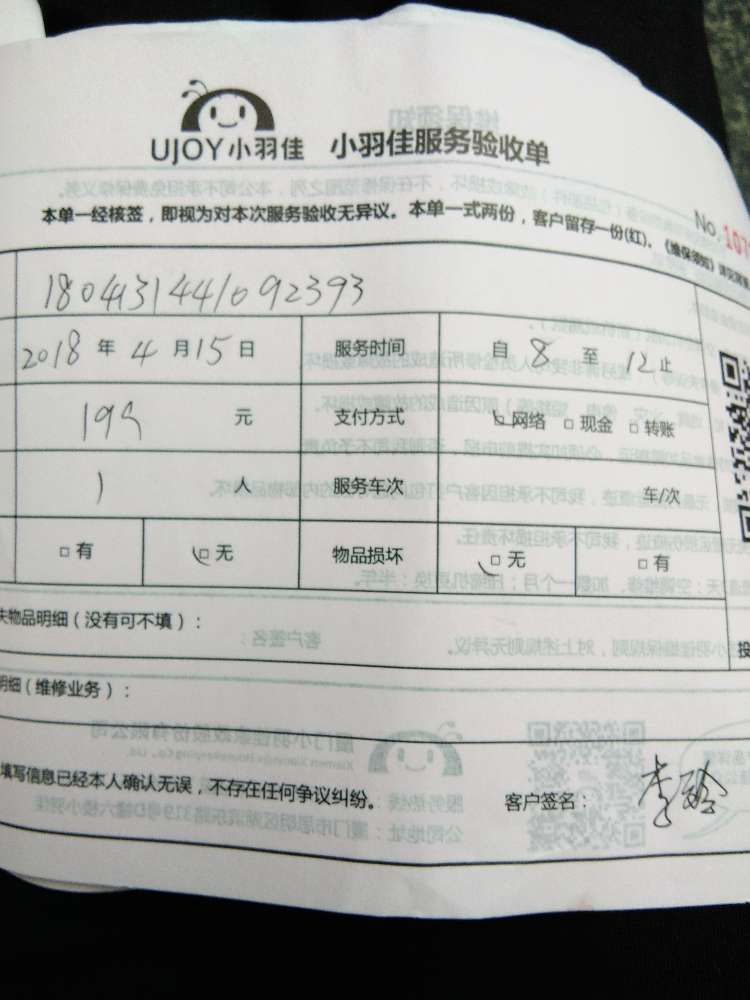 UJOY小羽佳 小羽佳服务验收单
No.107
本单一经核签，即视为对本次服务验收无异议。本单一式两份，客户留存一份(红)。《维保须知》详见背面
1804131441092393
2018年4月15日 服务时间 自8至12止
199元 支付方式 □网络 □现金 □转账
1人 服务车次 车/次
□有 □无 物品损坏 □无 □有
失物品明细（没有可不填）：
明细（维修业务）：
投
填写信息已经本人确认无误，不存在任何争议纠纷。 客户签名：李